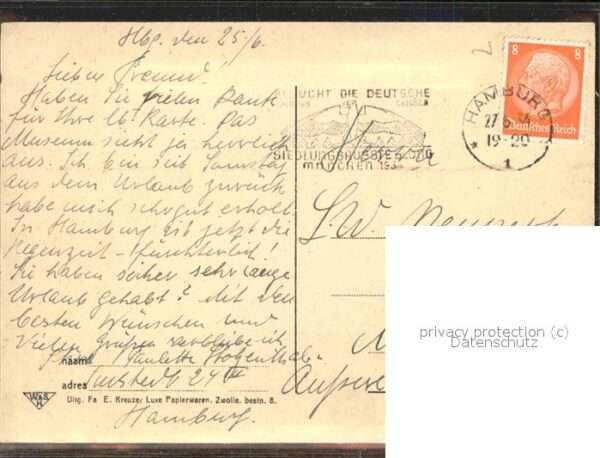 Hbg. den 25/6.
Lieber Freund!
Haben Sie vielen Dank
für Ihre lb. Karte. Das
Museum sieht ja herrlich
aus. Ich bin seit Samstag
aus dem Urlaub zurück
habe mich sehr gut erholt.
In Hamburg ist jetzt die
Regenzeit - fürchterlich!
Sie haben sicher sehr lange
Urlaub gehabt? Mit den
besten Wünschen und
vielen Grüßen verbleibe ich
naam
adres
24 IV
Uitg. Fa E. Kreuzer Luxe Papierwaren, Zwolle. bestn. 8.
Hamburg.
W&S
BESUCHT DIE DEUTSCHE
SIEDLUNGSAUSSTELLUNG
MÜNCHEN 1934
HAMBURG
27.6.
19-20
* 1
8 8
Deutsches Reich
2
Herrn
S.W.
privacy protection (c)
Datenschutz